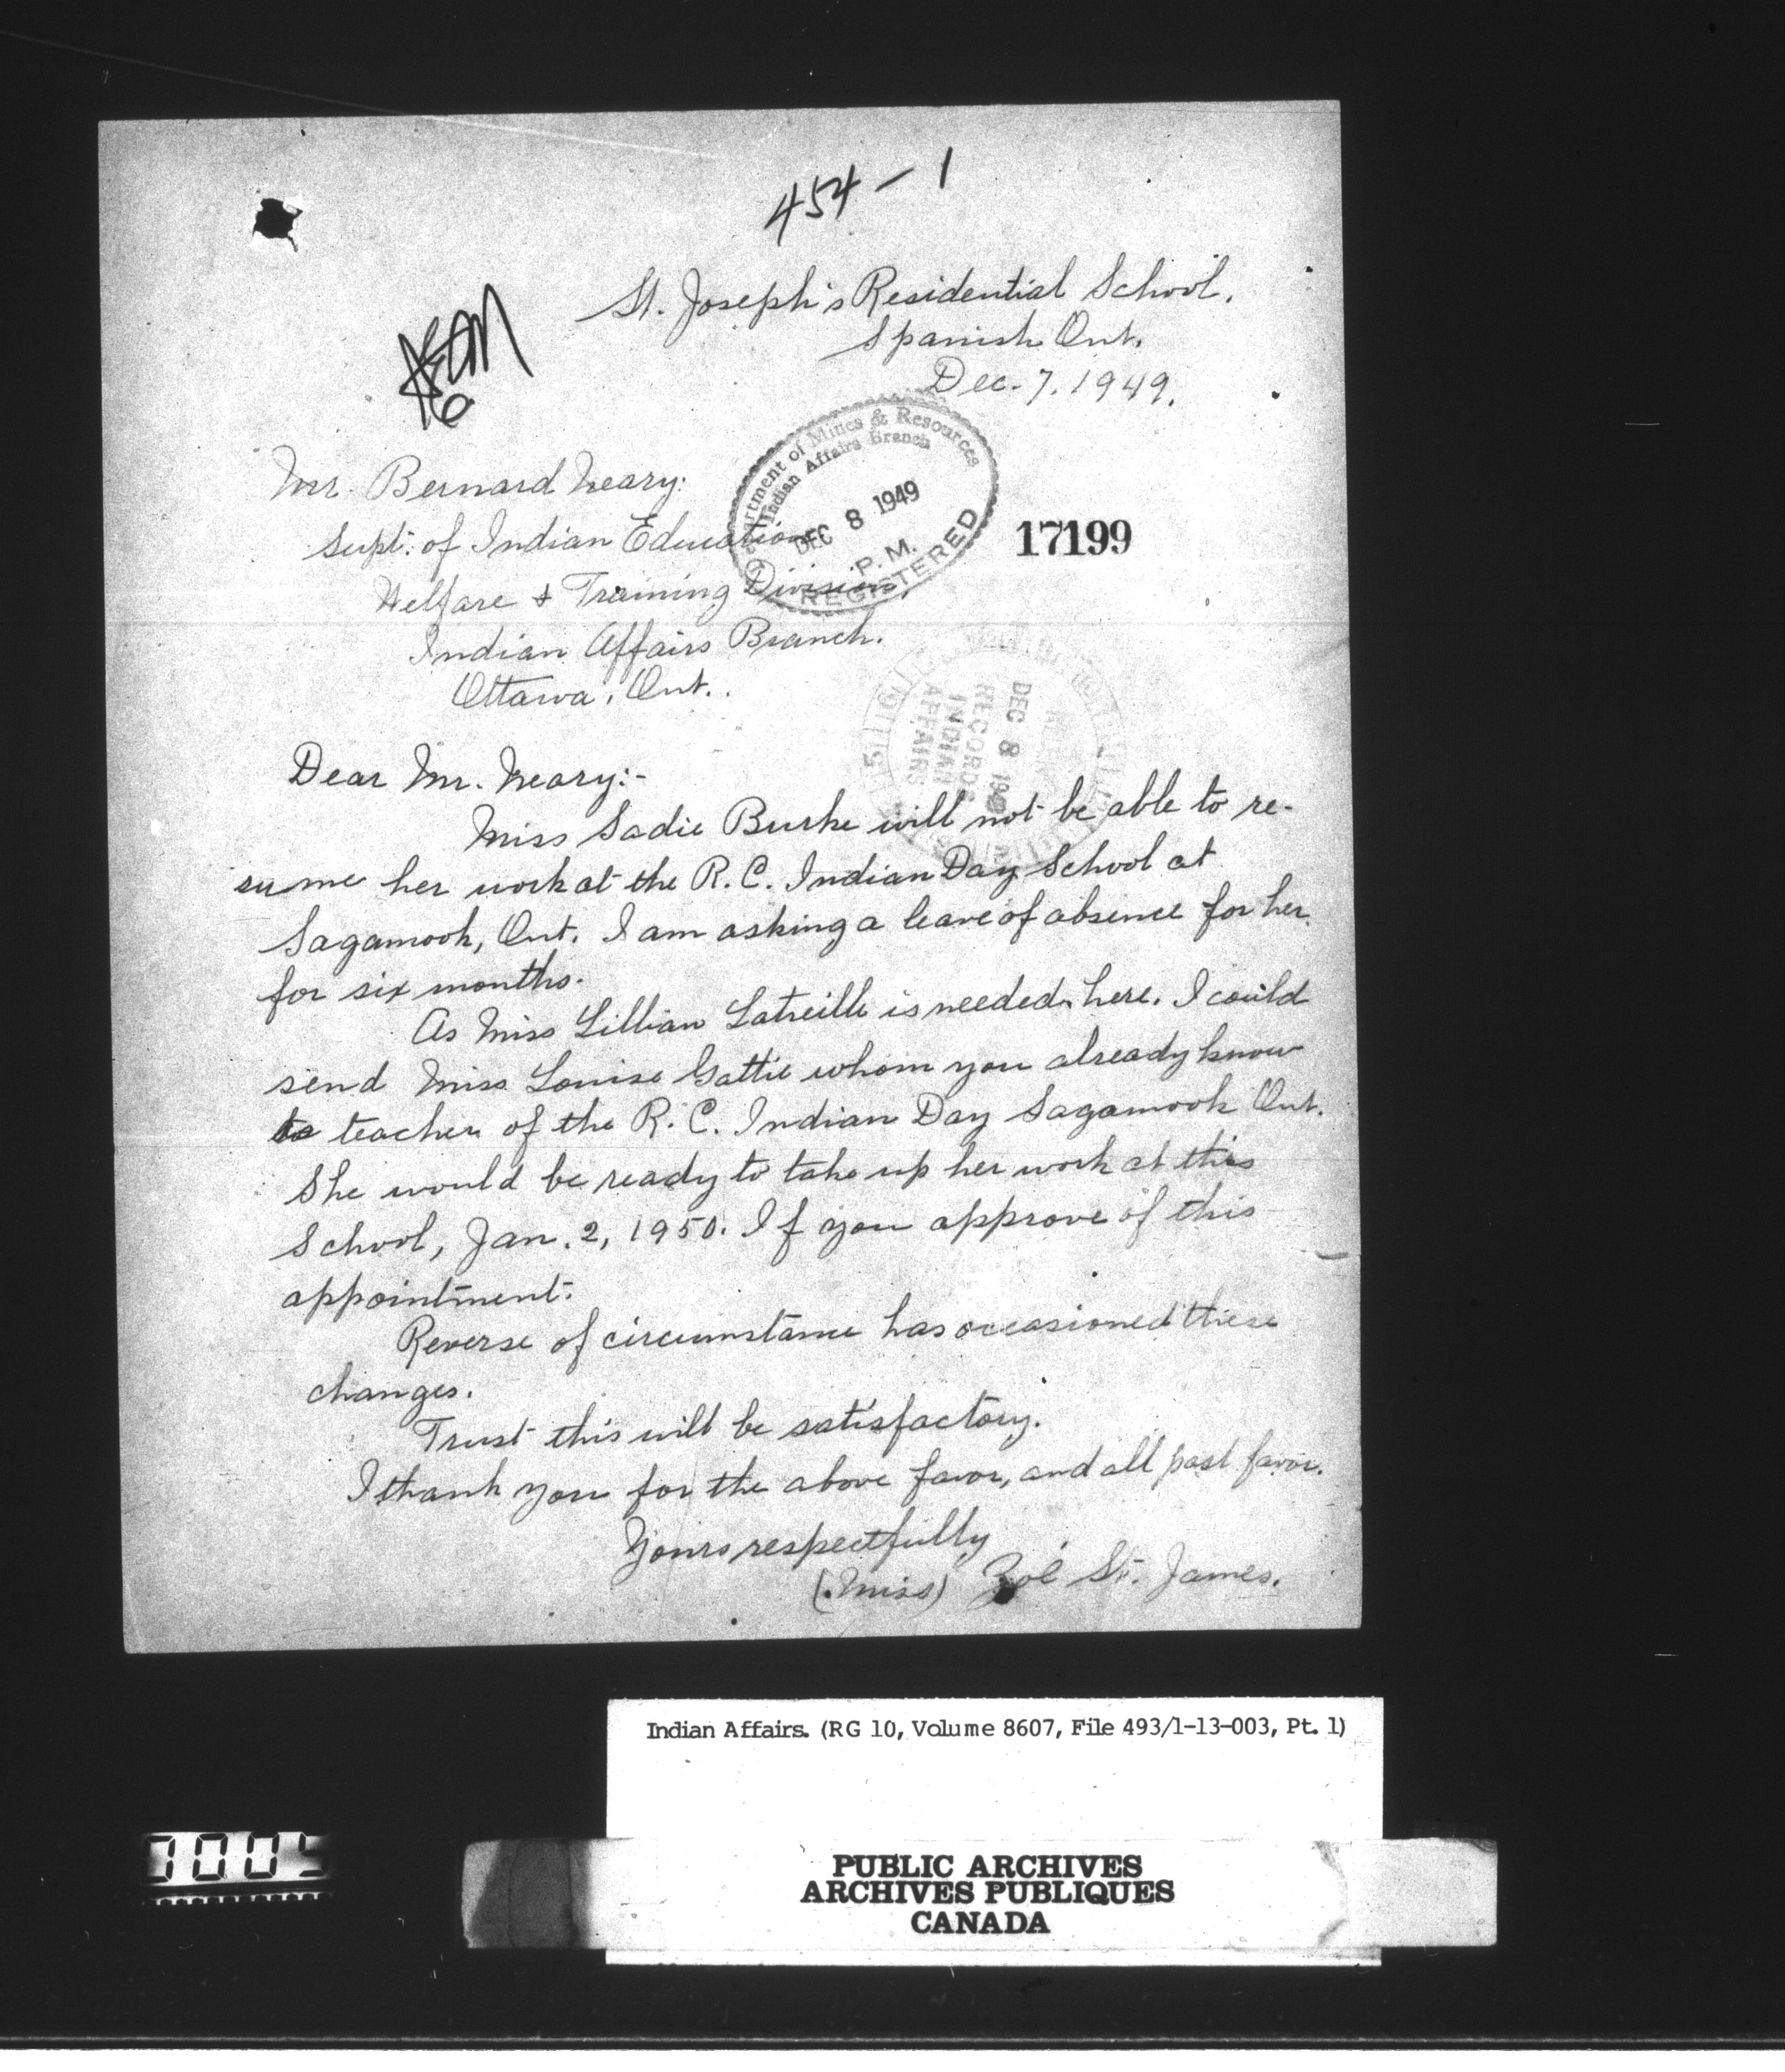 454 - 1
St. Joseph's Residential School.
Spanish Ont.
Dec. 7. 1949.
Department of Mines & Resources
Indian Affairs Branch
DEC 8 1949
P. M.
REGISTERED
17199
Mr. Bernard Neary:
Supt. of Indian Education
Welfare & Training Division.
Indian Affairs Branch.
Ottawa, Ont.
DEC 8
RECORDS
INDIAN
AFFAIRS
Dear Mr. Neary:-
Miss Sadie Burke will not be able to re-
sume her work at the R. C. Indian Day School at
Sagamook, Ont. I am asking a leave of absence for her
for six months.
As Miss Lillian Latreille is needed here. I could
send Miss Louise Gattie whom you already know
to teacher of the R. C. Indian Day Sagamook Ont.
She would be ready to take up her work at this
School, Jan. 2, 1950. If you approve of this
appointment.
Reverse of circumstance has occasioned these
changes.
Trust this will be satisfactory.
I thank you for the above favor, and all past favor.
Yours respectfully
(Miss) Zoé St. James.
Indian Affairs. (RG 10, Volume 8607, File 493/1-13-003, Pt. 1)
PUBLIC ARCHIVES
ARCHIVES PUBLIQUES
CANADA